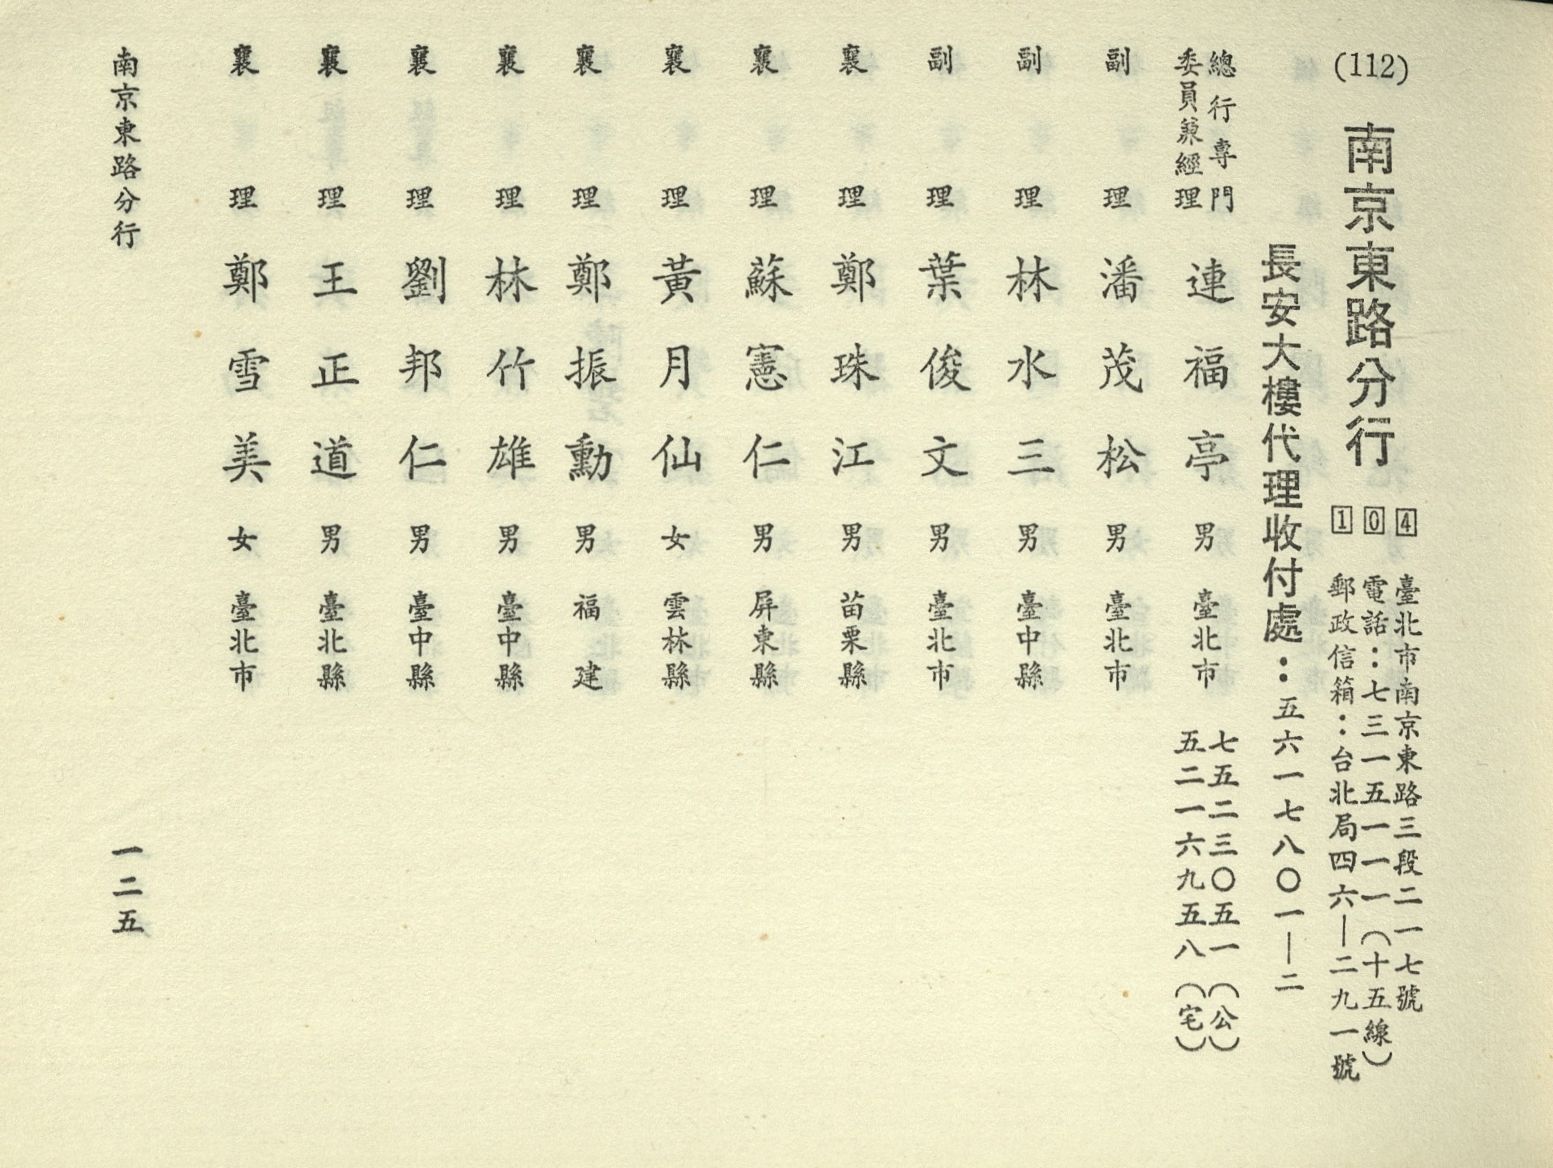 (112)
南京東路分行
104
臺北市南京東路三段二一七號
電話：七三一五一一一（十五線）
郵政信箱：台北局四六—二九一號
長安大樓代理收付處：五六一七八〇一—二
總行專門
委員兼經理
連福亭 男 臺北市
七五二三〇五一（公）
五二一六九五八（宅）
副理 潘茂松 男 臺北市
副理 林水三 男 臺中縣
副理 葉俊文 男 臺北市
襄理 鄭珠江 男 苗栗縣
襄理 蘇憲仁 男 屏東縣
襄理 黃月仙 女 雲林縣
襄理 鄭振勳 男 福建
襄理 林竹雄 男 臺中縣
襄理 劉邦仁 男 臺中縣
襄理 王正道 男 臺北縣
襄理 鄭雪美 女 臺北市
南京東路分行
一二五